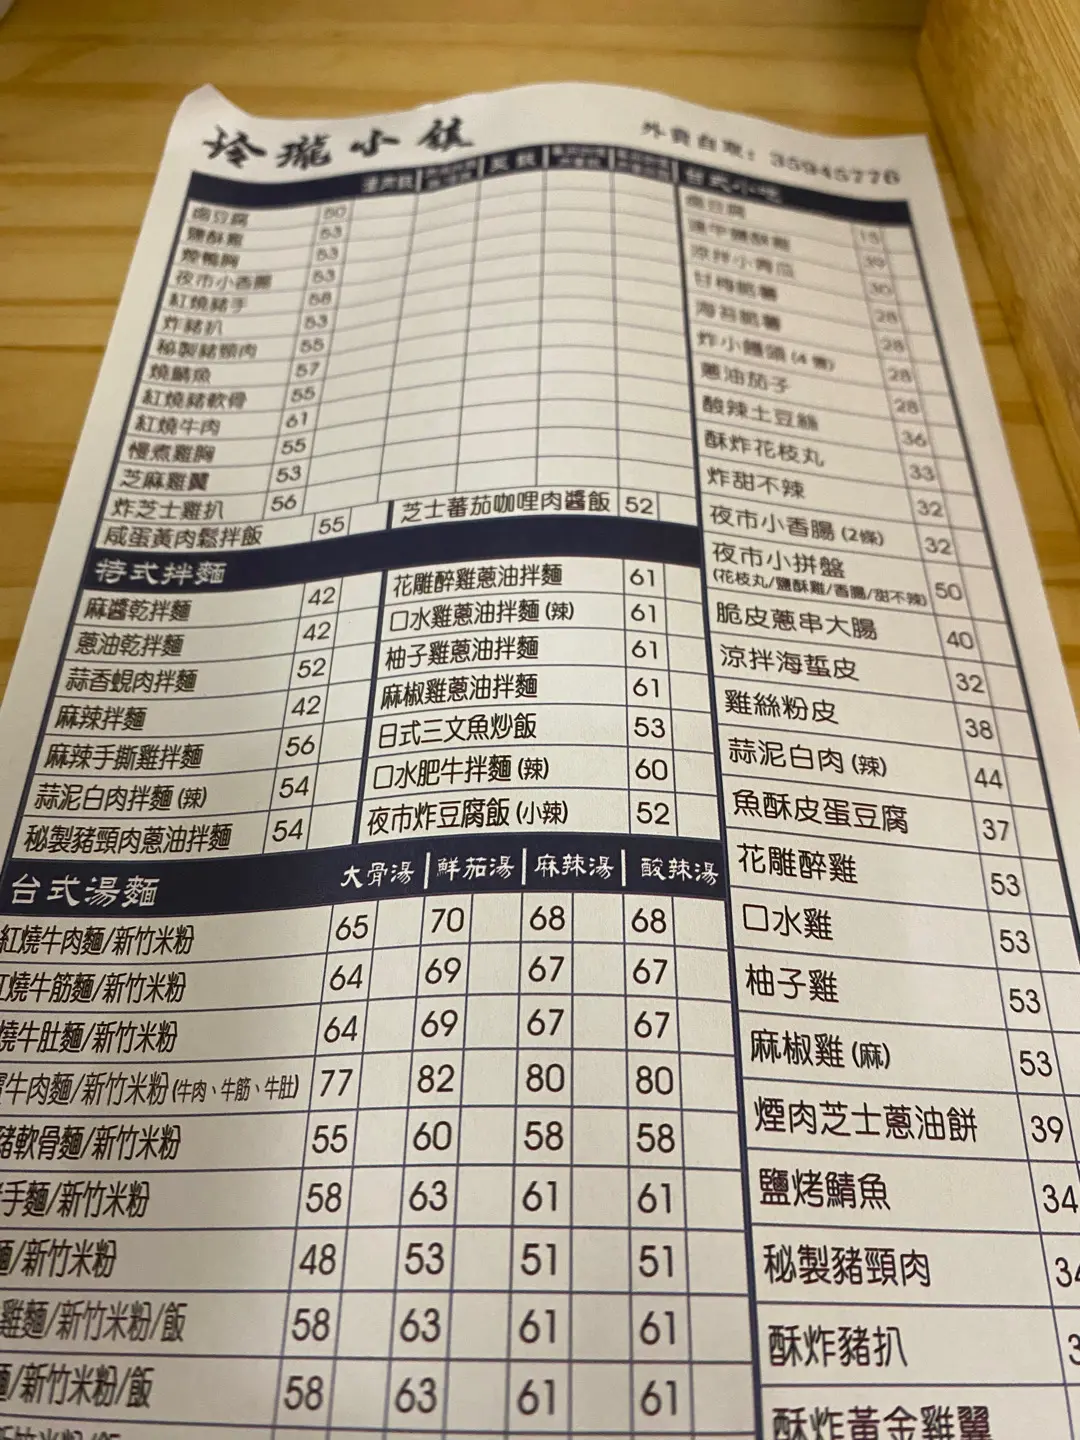 玲瓏小鎮
外賣自取：35945776
滷肉飯
台式小吃
滷豆腐 50
鹽酥雞 53
燒鴨胸 53
夜市小香腸 53
紅燒豬手 58
炸豬扒 53
秘製豬頸肉 55
燒鯖魚 57
紅燒豬軟骨 55
紅燒牛肉 61
慢煮雞胸 55
芝麻雞翼 53
炸芝士雞扒 56
咸蛋黃肉鬆拌飯 55
芝士蕃茄咖哩肉醬飯 52
特式拌麵
麻醬乾拌麵 42
蔥油乾拌麵 42
蒜香蜆肉拌麵 52
麻辣拌麵 42
麻辣手撕雞拌麵 56
蒜泥白肉拌麵 (辣) 54
秘製豬頸肉蔥油拌麵 54
花雕醉雞蔥油拌麵 61
口水雞蔥油拌麵 (辣) 61
柚子雞蔥油拌麵 61
麻椒雞蔥油拌麵 61
日式三文魚炒飯 53
口水肥牛拌麵 (辣) 60
夜市炸豆腐飯 (小辣) 52
台式湯麵 大骨湯 鮮茄湯 麻辣湯 酸辣湯
紅燒牛肉麵/新竹米粉 65 70 68 68
紅燒牛筋麵/新竹米粉 64 69 67 67
燒牛肚麵/新竹米粉 64 69 67 67
牛肉麵/新竹米粉 (牛肉、牛筋、牛肚) 77 82 80 80
豬軟骨麵/新竹米粉 55 60 58 58
手麵/新竹米粉 58 63 61 61
麵/新竹米粉 48 53 51 51
雞麵/新竹米粉/飯 58 63 61 61
麵/新竹米粉/飯 58 63 61 61
滷豆腐 15
鹽酥雞 39
涼拌小青瓜 30
甘梅脆薯 28
海苔脆薯 28
炸小饅頭 (4 個) 28
蔥油茄子 28
酸辣土豆絲 36
酥炸花枝丸 33
炸甜不辣 32
夜市小香腸 (2條) 32
夜市小拼盤
(花枝丸/鹽酥雞/香腸/甜不辣) 50
脆皮蔥串大腸 40
涼拌海蜇皮 32
雞絲粉皮 38
蒜泥白肉 (辣) 44
魚酥皮蛋豆腐 37
花雕醉雞 53
口水雞 53
柚子雞 53
麻椒雞 (麻) 53
煙肉芝士蔥油餅 39
鹽烤鯖魚 34
秘製豬頸肉 34
酥炸豬扒
酥炸黃金雞翼